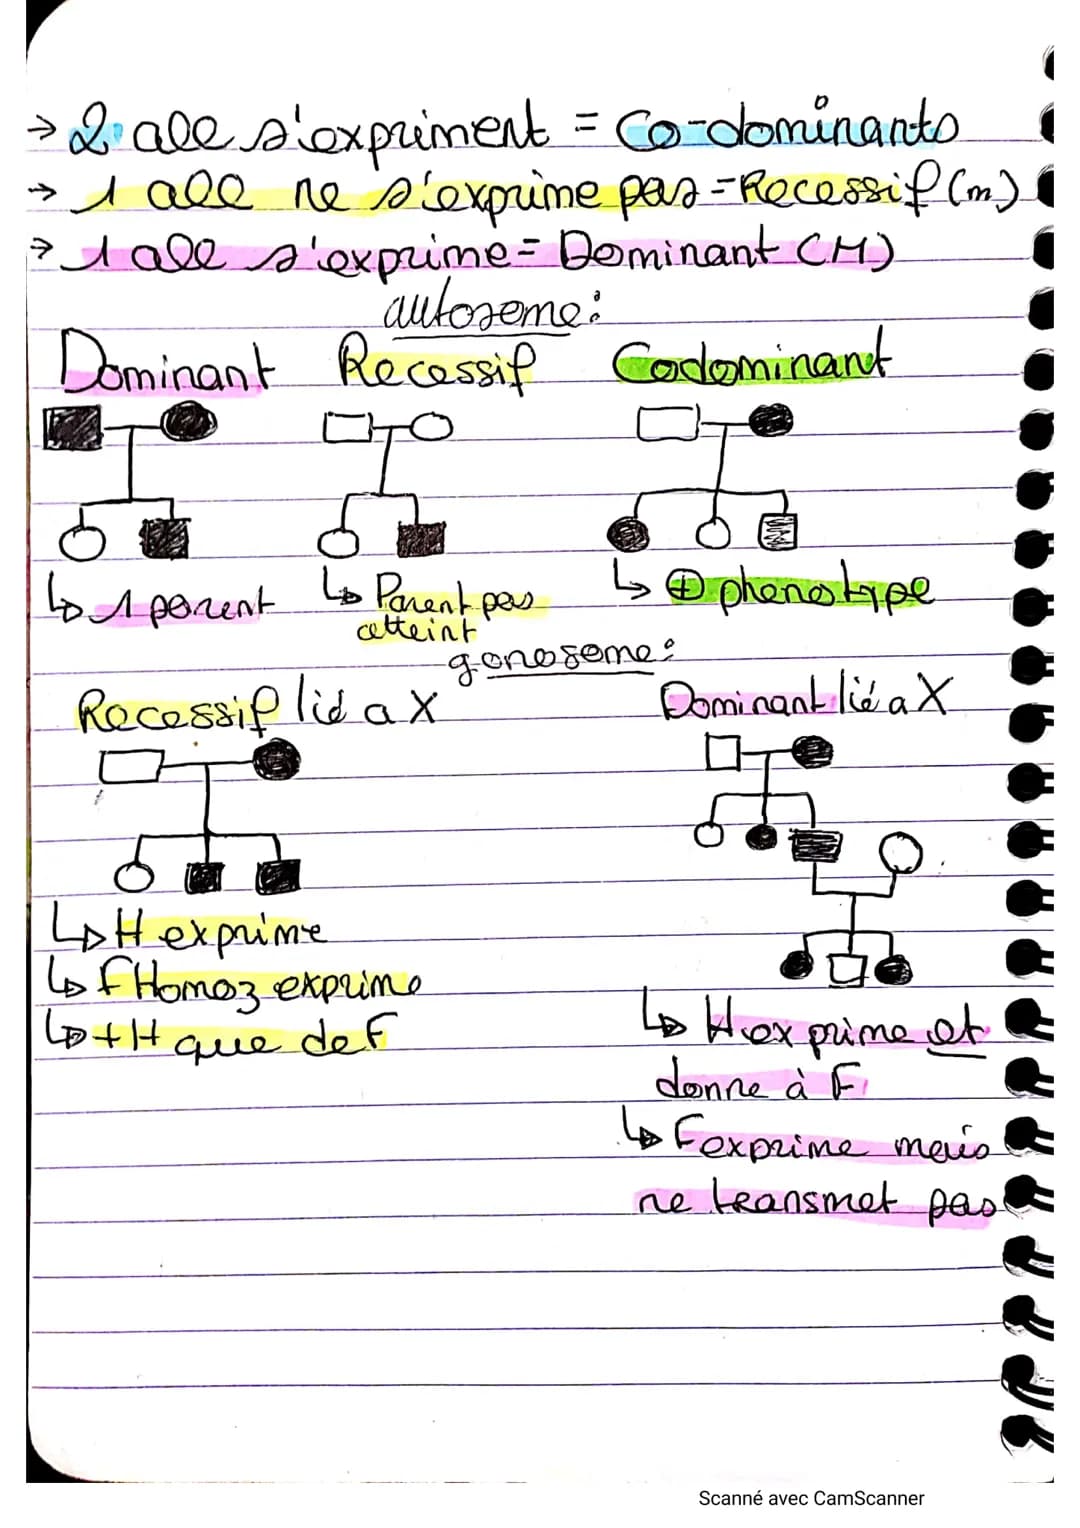 → 2 all s'expriment = Co-dominants
→ 1 all ne s'exprime pas = Recessif (m)
→ 1 all s'exprime = Dominant (M)
autosome:
Dominant Recessif Codominant
↳ 1 parent ↳ Parent pas atteint ↳ ⊕ phenotype
gonosome:
Recessif lié a X Dominant lié a X
↳ H exprime
↳ f Homoz exprime
↳ + H que de F
↳ H exprime et
donne à F
↳ F exprime mais
ne transmet pas
Scanné avec CamScanner